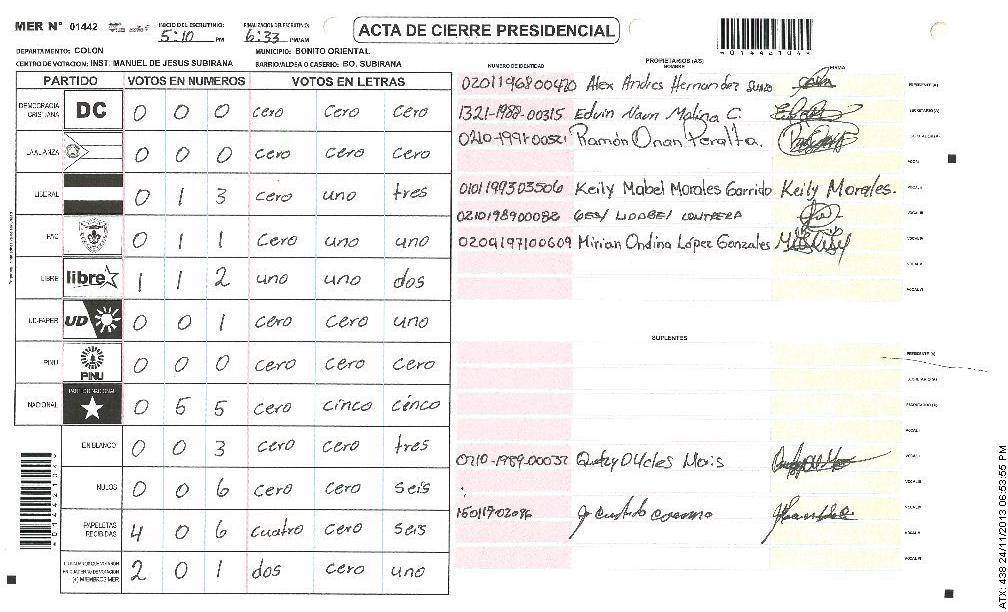 MER N° 01442
INICIO DEL ESCRUTINIO: 5:10 PM
FINALIZACION DEL ESCRUTINIO: 6:33 PM/AM
ACTA DE CIERRE PRESIDENCIAL
*01442104*
DEPARTAMENTO: COLON
MUNICIPIO: BONITO ORIENTAL
CENTRO DE VOTACION: INST. MANUEL DE JESUS SUBIRANA
BARRIO/ALDEA O CASERIO: BO. SUBIRANA
PARTIDO VOTOS EN NUMEROS VOTOS EN LETRAS
DEMOCRACIA CRISTIANA DC 0 0 0 cero cero cero
LA ALIANZA 0 0 0 cero cero cero
LIBERAL 0 1 3 cero uno tres
PAC 0 1 1 cero uno uno
LIBRE libre 1 1 2 uno uno dos
UD-FAPER UD 0 0 1 cero cero uno
PINU PINU 0 0 0 cero cero cero
NACIONAL PARTIDO NACIONAL 0 5 5 cero cinco cinco
EN BLANCO 0 0 3 cero cero tres
NULOS 0 0 6 cero cero seis
PAPELETAS RECIBIDAS 4 0 6 cuatro cero seis
(+) MIEMBROS MER 2 0 1 dos cero uno
NUMERO DE IDENTIDAD
PROPIETARIOS (AS)
NOMBRE
FIRMA
0201196800420 Alex Andres Hernandez
1321-1988-00315 Edvin Naun Molina C.
Ramón Onan Peralta.
0101199303506 Keily Mabel Morales Garrido Keily Morales.
0210198900082
0209197100609 Mirian Ondina López Gonzales
SUPLENTES
0210-1989-00032
*01442104*
ATX: 438 24/11/2013 06:53:55 PM